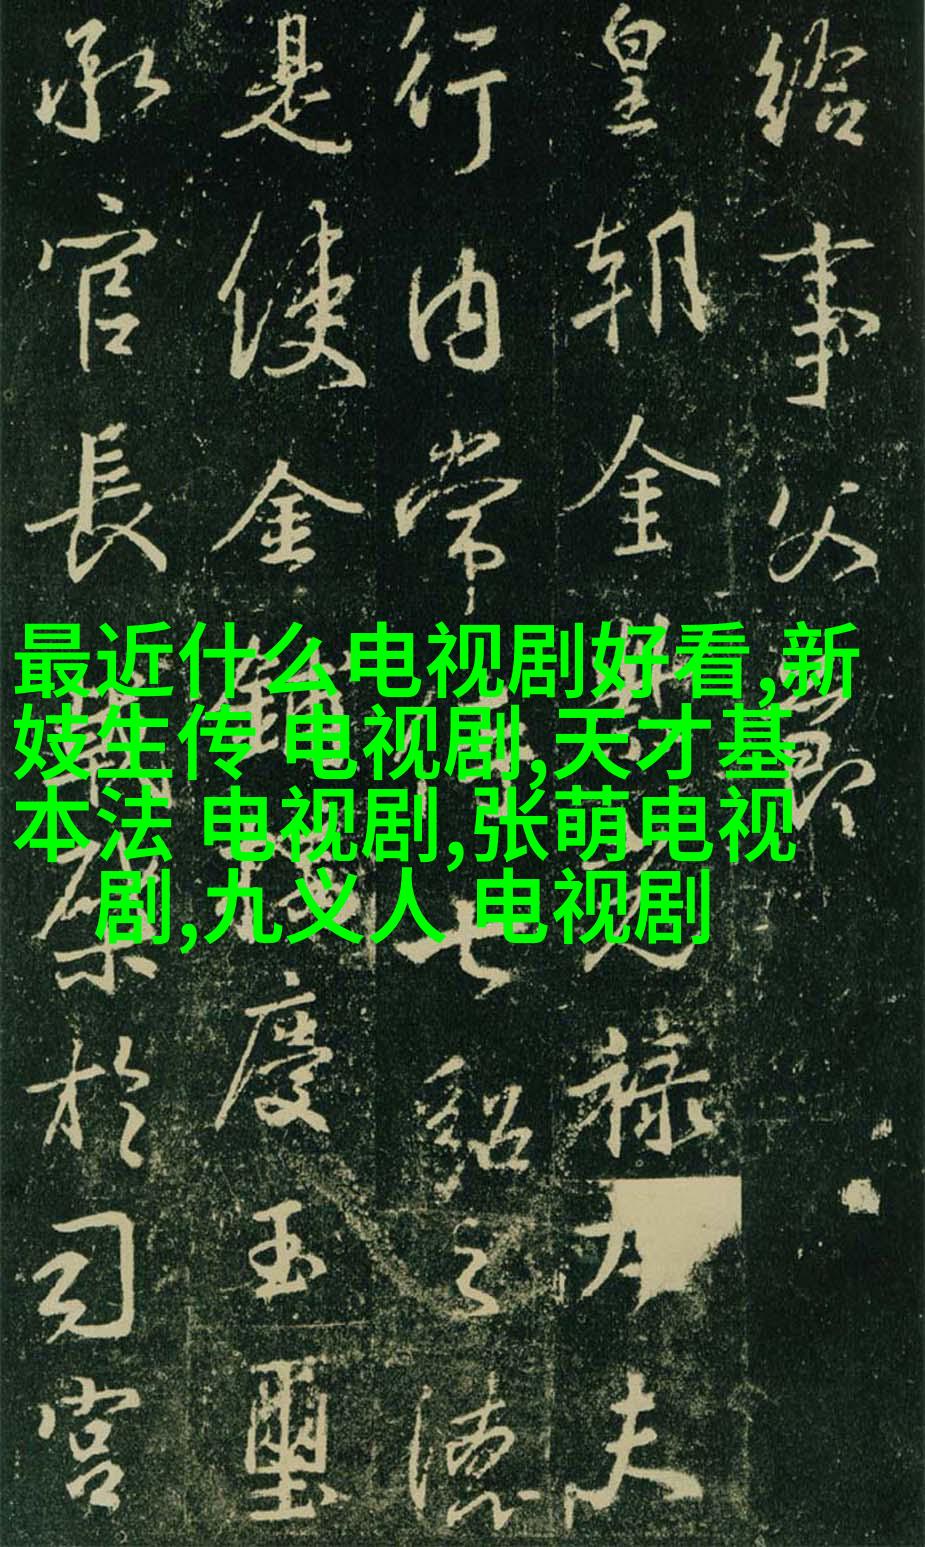 給事父
皇朝金祿大夫
行內常侍七貂之德
是使金慶玉璽
承官長榮於司宮
最近什么电视剧好看,新
妓生传 电视剧,天才基
本法 电视剧,张萌电视
剧,九义人 电视剧